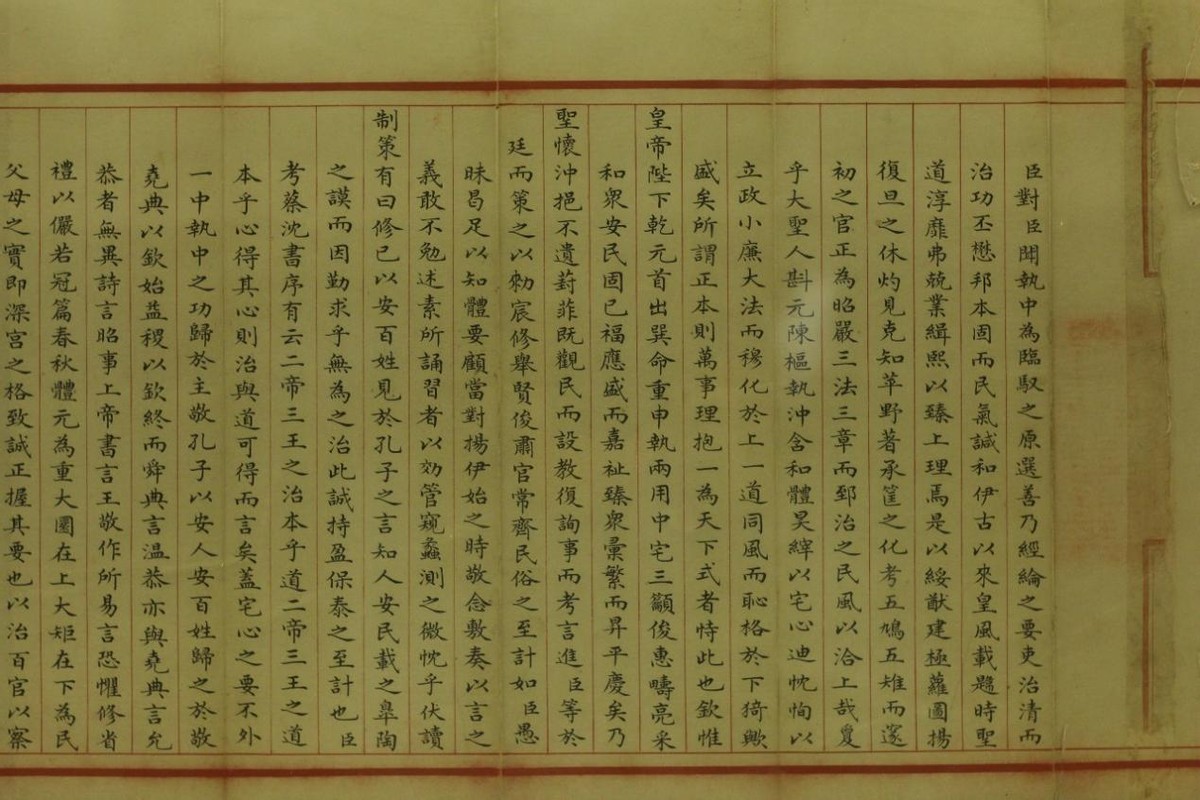 臣對臣聞執中為臨馭之原選善乃經綸之要吏治清而
治功丕懋邦本固而民氣諴和伊古以來皇風載懿時聖
道淳靡弗兢業緝熙以臻上理焉是以綏猷建極蘿圖揚
復旦之休灼見克知苹野著承筐之化考五鳩五雉而邃
初之官正為昭嚴三法三章而郅治之民風以洽上哉敻
乎大聖人斟元陳樞執沖含和體昊縡以宅心迪忱恂以
立政小廉大法而穆化於上一道同風而恥格於下猗歟
盛矣所謂正本則萬事理抱一為天下式者恃此也欽惟
皇帝陛下乾元首出巽命重申執兩用中宅三籲俊惠疇亮采
和衆安民固已福應盛而嘉祉臻衆彙繁而昇平慶矣乃
聖懷沖挹不遺葑菲既觀民而設教復詢事而考言進臣等於
廷而策之以勑宸修舉賢俊肅官常齊民俗之至計如臣愚
昧曷足以知體要顧當對揚伊始之時敬念敷奏以言之
義敢不勉述素所誦習者以効管窺蠡測之微忱乎伏讀
制策有曰修己以安百姓見於孔子之言知人安民載之皐陶
之謨而因勤求乎無為之治此誠持盈保泰之至計也臣
考蔡沈書序有云二帝三王之治本乎道二帝三王之道
本乎心得其心則治與道可得而言矣蓋宅心之要不外
一中執中之功歸於主敬孔子以安人安百姓歸之於敬
堯典以欽始益稷以欽終而舜典言温恭亦與堯典言允
恭者無異詩言昭事上帝書言王敬作所易言恐懼修省
禮以儼若冠篇春秋體元為重大圜在上大矩在下為民
父母之實即深宮之格致誠正握其要也以治百官以察